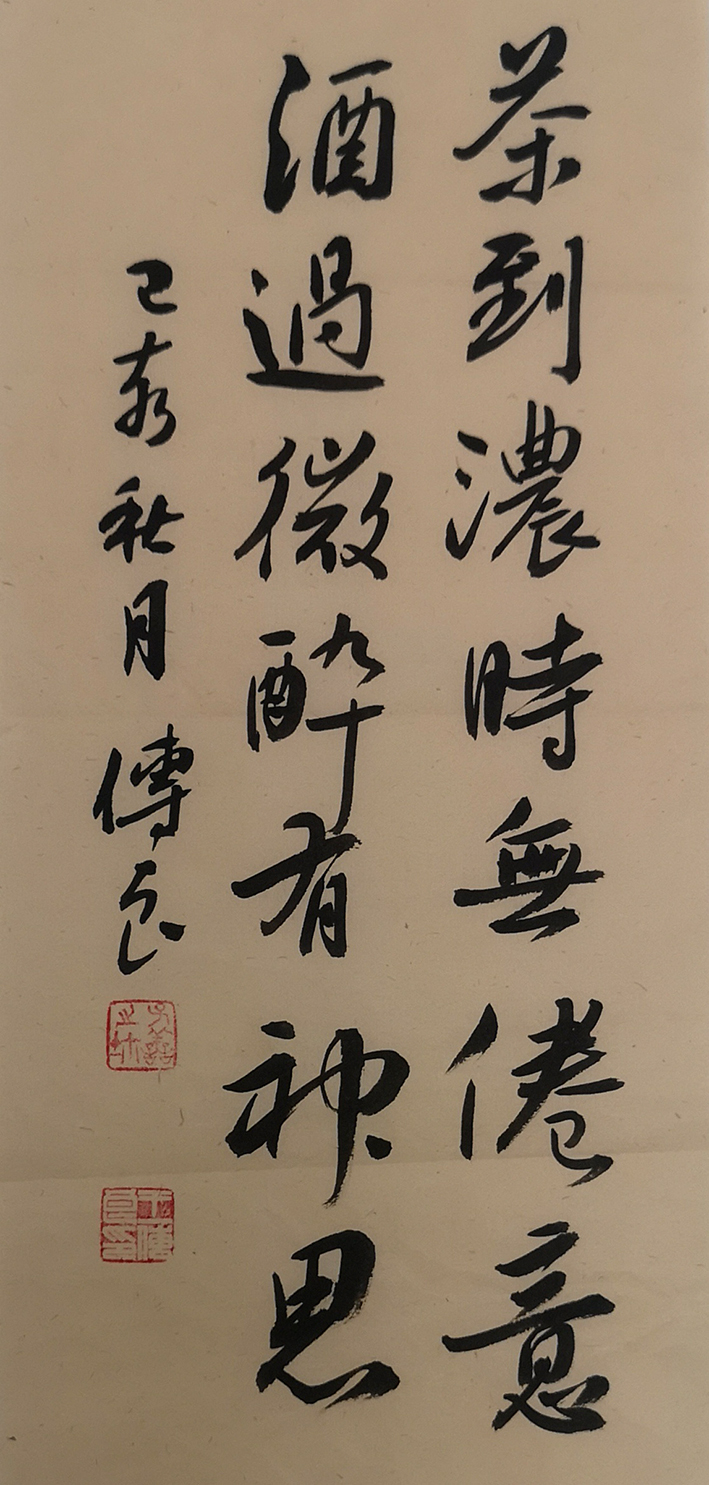 茶到濃時無倦意
酒過微醉有神思
己亥秋月 傳良